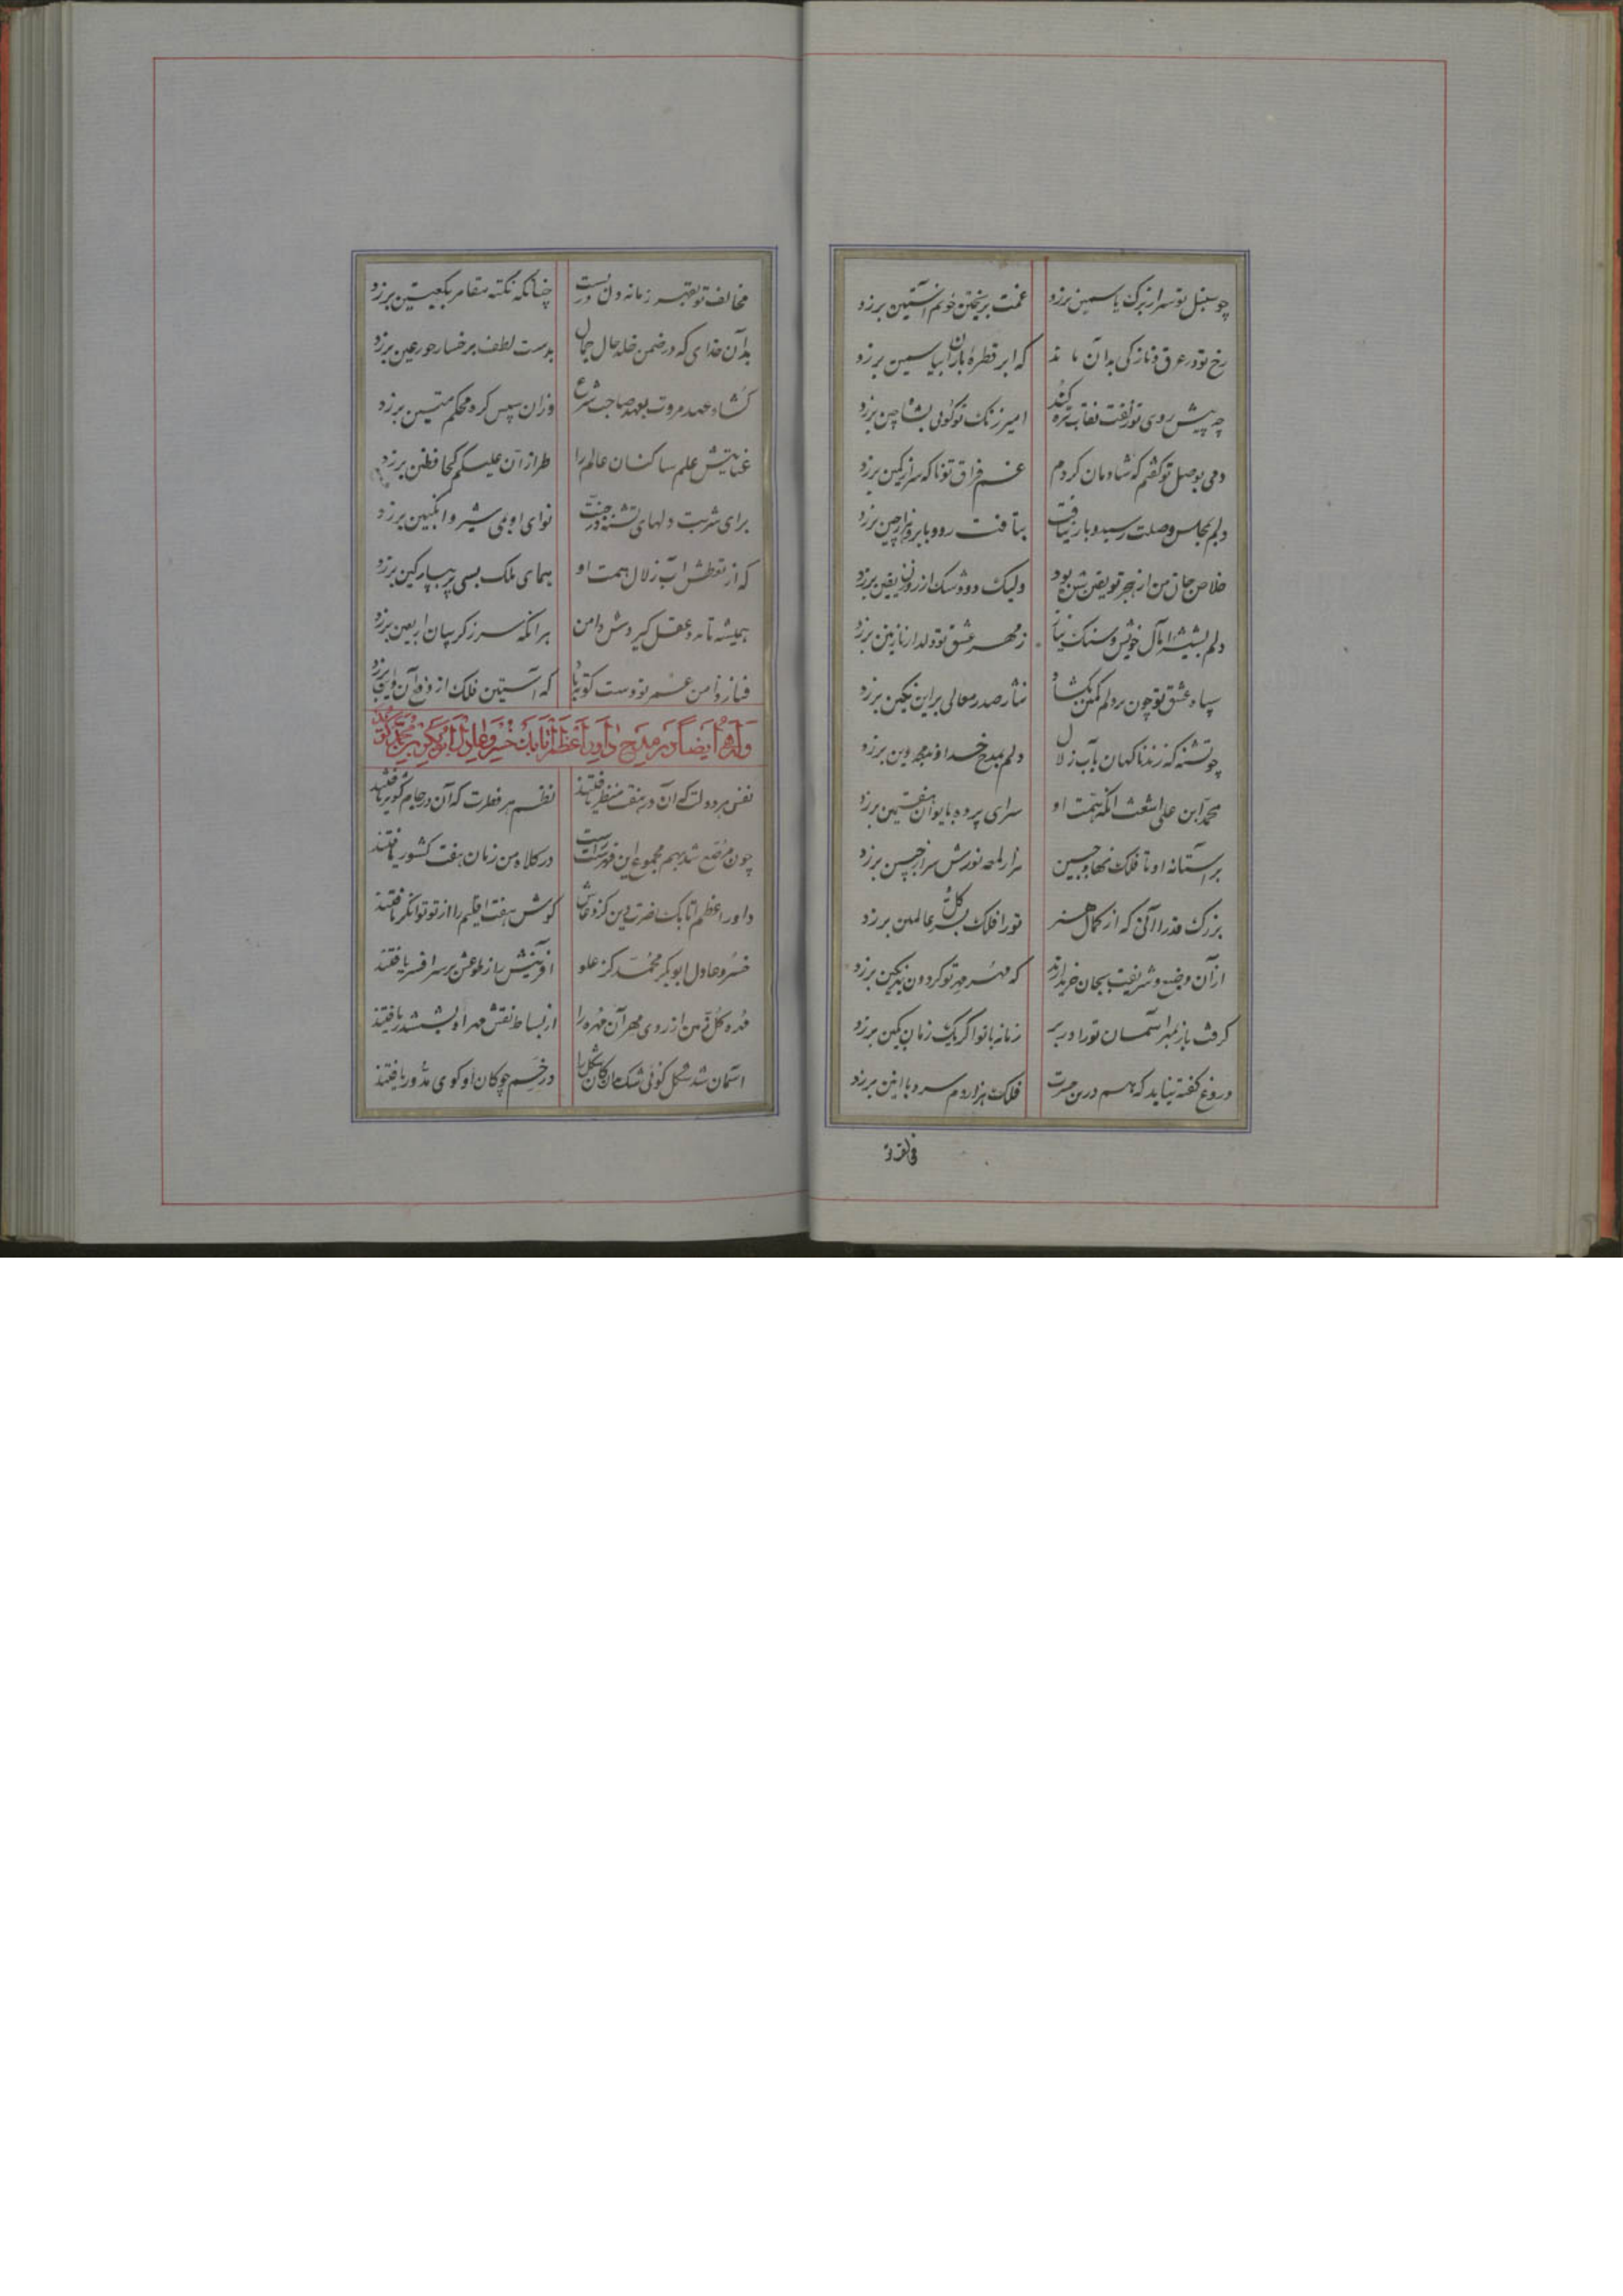 چو سنبل تو سر از برک یاسمین برزد غمت بریختن خونم آستین برزد
رخ تو در عرق و نازکی بدان ماند که ابر قطرهٔ باران بیاسمین برزد
چه پیش روی تو زلفت نقاب تیره کند امیر زنک تو کوئی بشاه چین برزد
دمی بوصل تو کفتم که شادمان کردم غم فراق تو ناکه سر از کمین برزد
دلم بمجلس وصلت رسید و بار نیافت بتافت رو و با برو هزار چین برزد
خلاص جان من از هجر تو یقین شده بود ولیک دود شک از روزن یقین برزد
دلم بشیشه مهر عشق تو دلدار نازنین برزد
سپاه عشق تو چون بر دلم کمین بکشاد نثار صدر معالی براین نکین برزد
چو تشنه که زند ناکهان بآب زلال دلم بمدح خداوند مجد دین برزد
محمد ابن علی اشعث انکه همت او سرای پرده بایوان هفتمین برزد
بر آستانه او تا فلک نهاد جبین هزار لمعه نورش سر از جبین برزد
بزرک قدرا آنی که از کمال هنر تو را فلک بسر کل عالمین برزد
از آن وضیع و شریفت بجان خریدارند که مهر مهر تو کردون بر نکین برزد
کرفت باز مهر آسمان تو را در بر زمانه با تو اکر یک زمان بکین برزد
دروغ کفته نیاید که هم درین حسرت فلک هزار دم سرد با انین برزد
فی لفه و
مخالف تو بقهر زمانه دل در بست چنانکه نکته مقامر بکعبتین برزد
بدان خدای که در ضمن خلد حال جمال بدست لطف بر خسار حور عین برزد
کشاد عهد مروت بعهد صاحب شرع وزان سپس کره محکم متین برزد
عنایتش علم ساکنان عالم را طراز آن علیکم لحافظین برزد
برای شربت دلهای تشنه در جنت نوای او بمی شیر و انکبین برزد
که از تعطش آب زلال همت او همای ملک بسی پر بپارکین برزد
همیشه تا مدد عقل کیردش دامن برانکه سر ز کریبان اربعین برزد
فنا ز دامن عمر تو دست کوته باد که آستین فلک از
وله ایضا در مدح داور اعظم اتابک خسرو عادل ابوبکر بن محمد کوید
نقش هر دولت که آن در هفت منظر یافتند نظم هر فطرت که آن در چام کوهر یافتند
چون مرصع شد بهم مجموع این فهرست در کلاه من زمان هفت کشور یافتند
داور اعظم اتابک نصرت دین کز دعاش کوش هفت اقلیم را از تو توانکر یافتند
خسرو عادل ابوبکر محمد کز علو آفرینش را ز طوعش بر سر افسر یافتند
مهره کل من از روی مهر آن مهره را از بساط نقش مهر او بششدر یافتند
آسمان شد شکل کوئی شک مدان کان شکل را در خم چوکان او کوی مدور یافتند